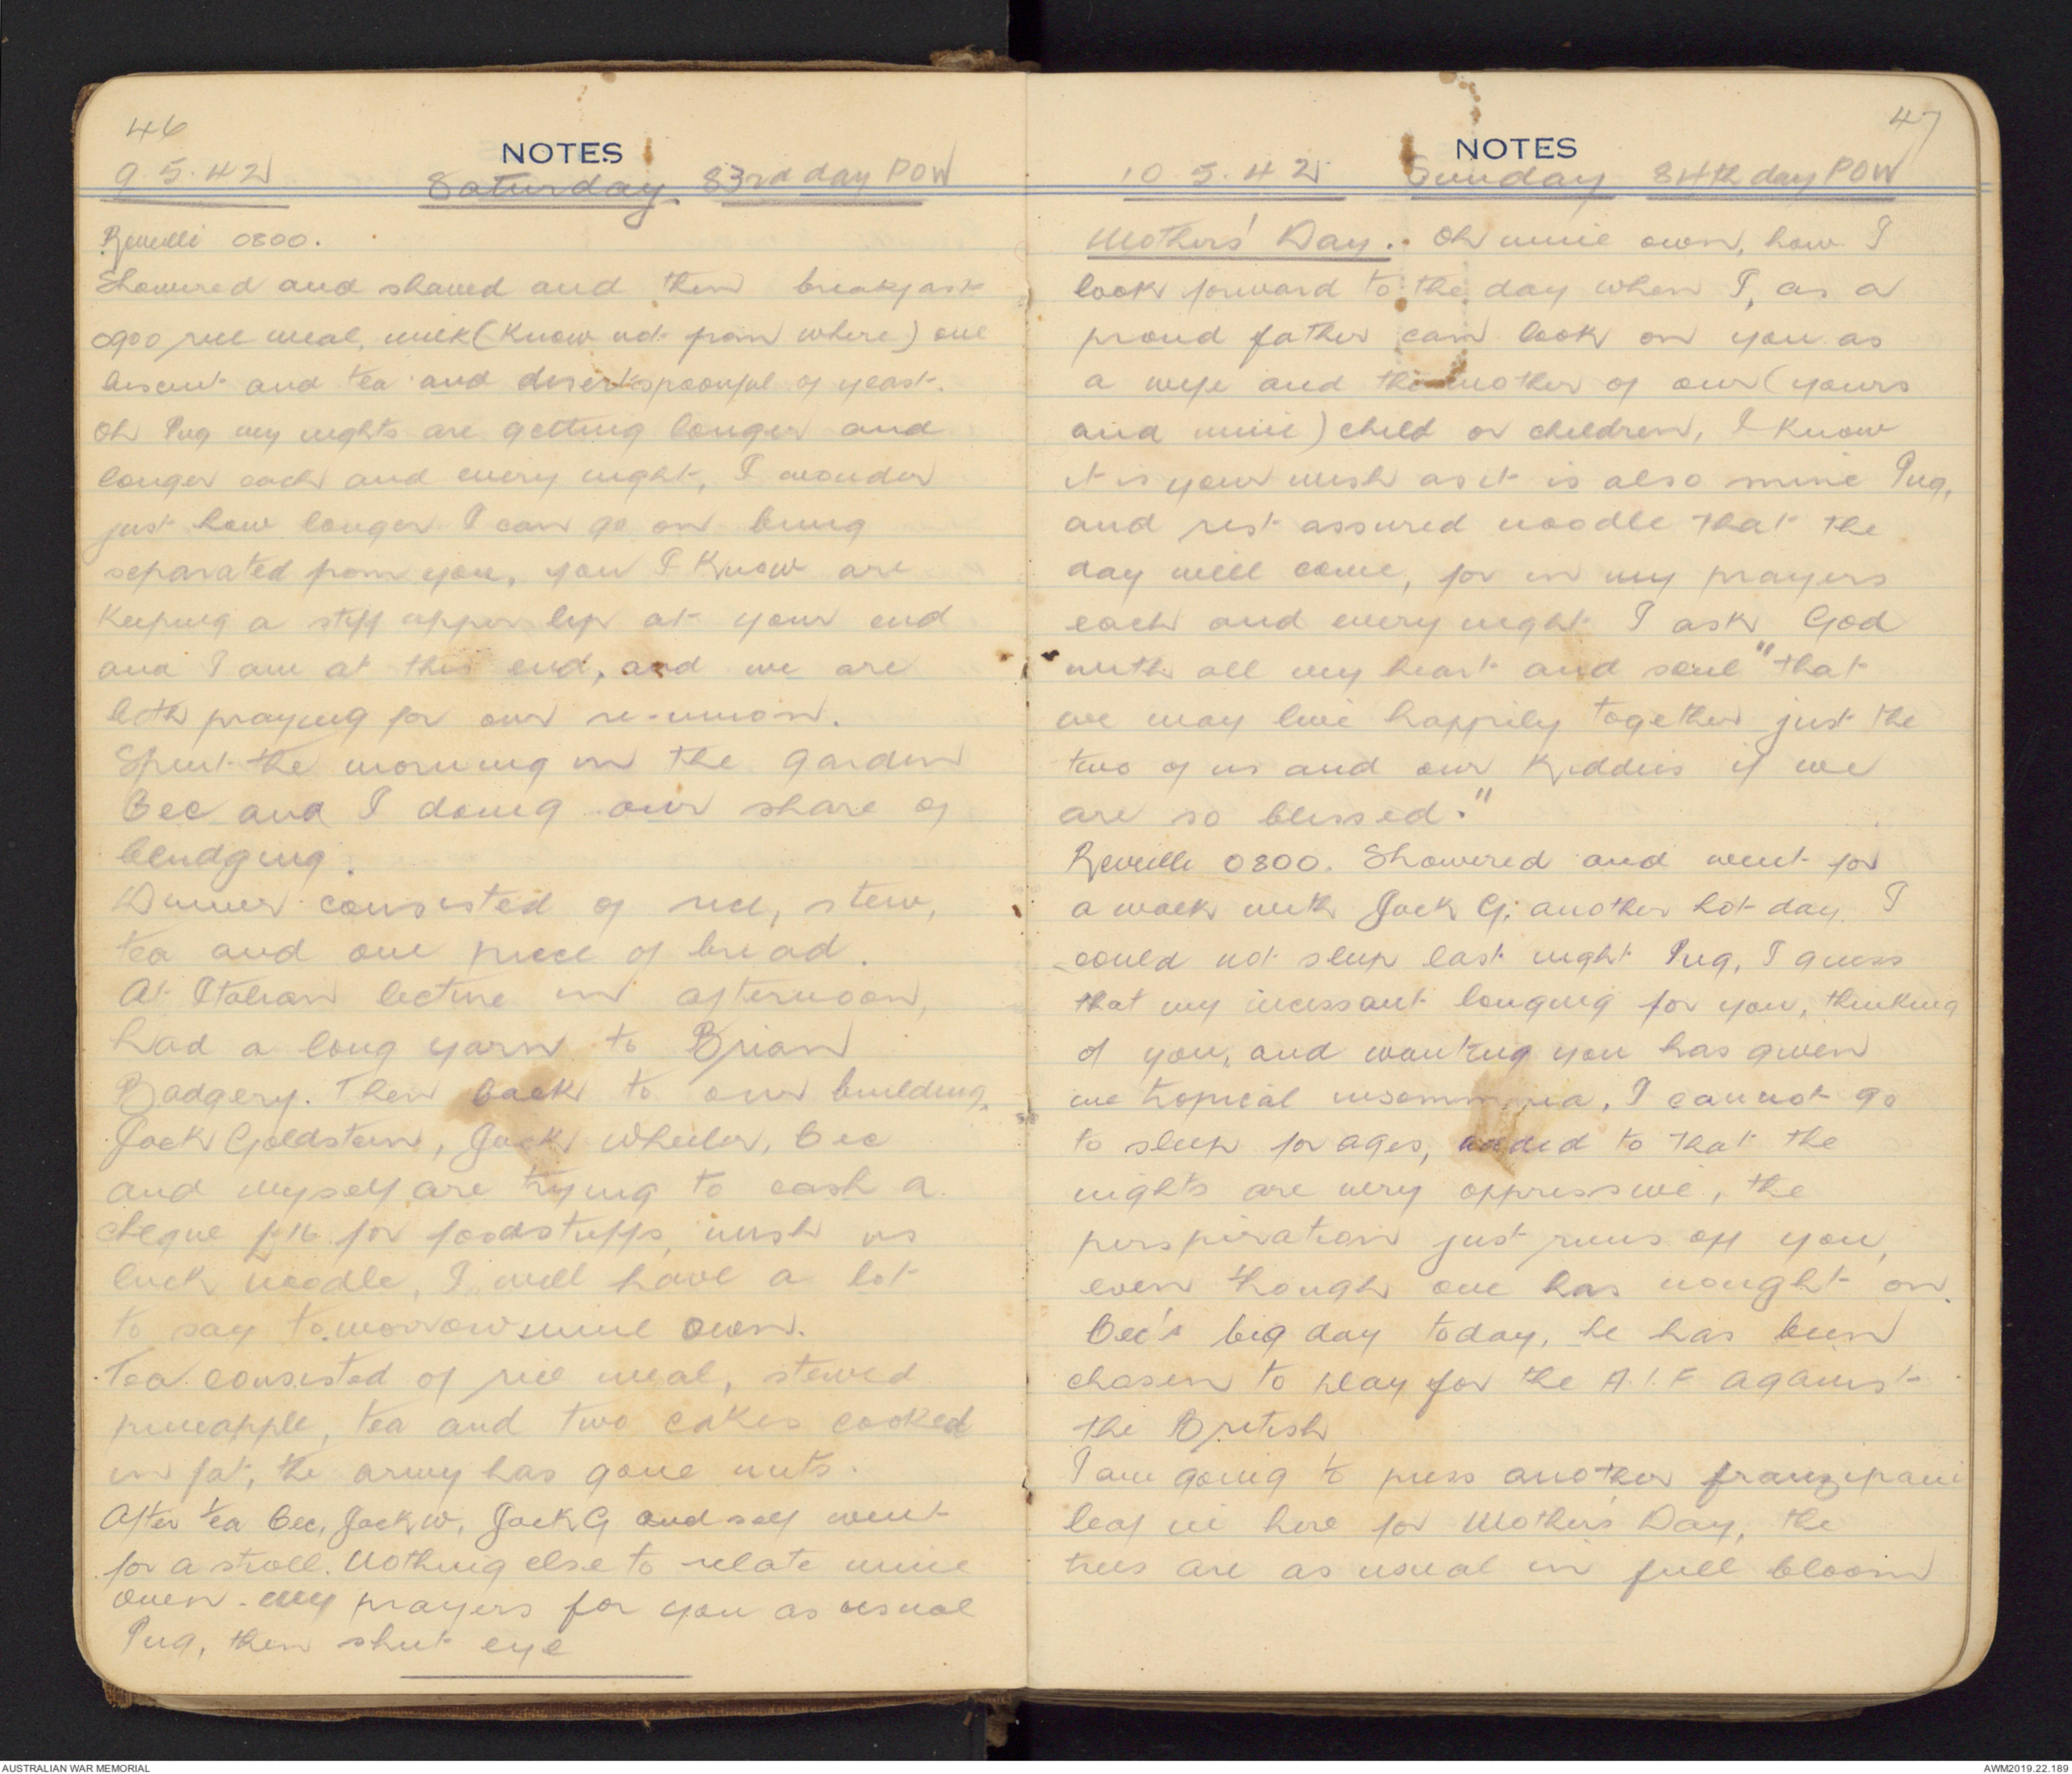 46
NOTES
9.5.42 Saturday 83rd day POW
Reveille 0800.
Showered and shaved and then breakfast
0900 rice meal, milk (Know not from where) one
biscuit and tea and desertspoonful of yeast.
Oh Pug my nights are getting longer and
longer each and every night, I wonder
just how longer I can go on being
separated from you, you I Know are
Keeping a stiff upper lip at your end
and I am at this end, and we are
both praying for our re-union.
Spent the morning in the garden
Bec and I doing our share of
bludging.
Dinner consisted of rice, stew,
tea and one piece of bread.
At Italian lecture in afternoon,
had a long yarn to Brian
Badgery. Then back to our building,
Jack Goldstein, Jack Wheeler, Bec
and myself are trying to cash a
cheque £16 for foodstuffs, wish us
luck noodle, I will have a lot
to say tomorrow mine own.
Tea consisted of rice meal, stewed
pineapple, tea and two cakes cooked
in fat, the army has gone nuts.
After tea Bec, Jack W, Jack G and self went
for a stroll. Nothing else to relate mine
own - my prayers for you as usual
Pug, then shut eye
47
NOTES
10.5.42 Sunday 84th day POW
Mothers' Day. Oh mine own, how I
look forward to the day when I, as a
proud father can look on you as
a wife and the mother of our (yours
and mine) child or children, I Know
it is your wish as it is also mine Pug,
and rest assured noodle that the
day will come, for in my prayers
each and every night I ask God
"with all my heart and soul" that
we may live happily together just the
two of us and our Kiddies if we
are so blessed."
Reveille 0800. Showered and went for
a walk with Jack G; another hot day. I
could not sleep last night Pug, I guess
that my incessant longing for you, thinking
of you, and wanting you has given
me tropical insommnia, I cannot go
to sleep for ages, added to that the
nights are very oppressive, the
perspiration just runs off you,
even though one has nought on.
Bec's big day today, he has been
chosen to play for the A.I.F against
the British
I am going to press another frangipani
leaf in here for Mother's Day, the
trees are as usual in full bloom
AUSTRALIAN WAR MEMORIAL
AWM2019.22.189